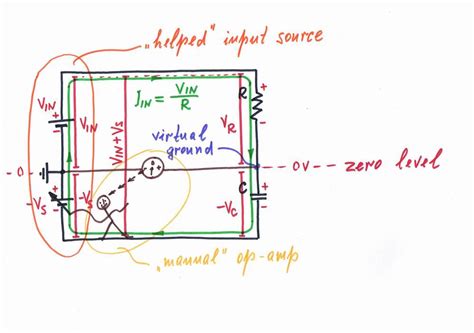 „helped" input source
+
VIN
-
VIN
VIN+VS
IIN = VIN/R
R
+
VR
-
virtual
ground
- 0 -
-- 0V -- zero level
-VS
+
-VS
C
+
-VC
-
„manual" op-amp